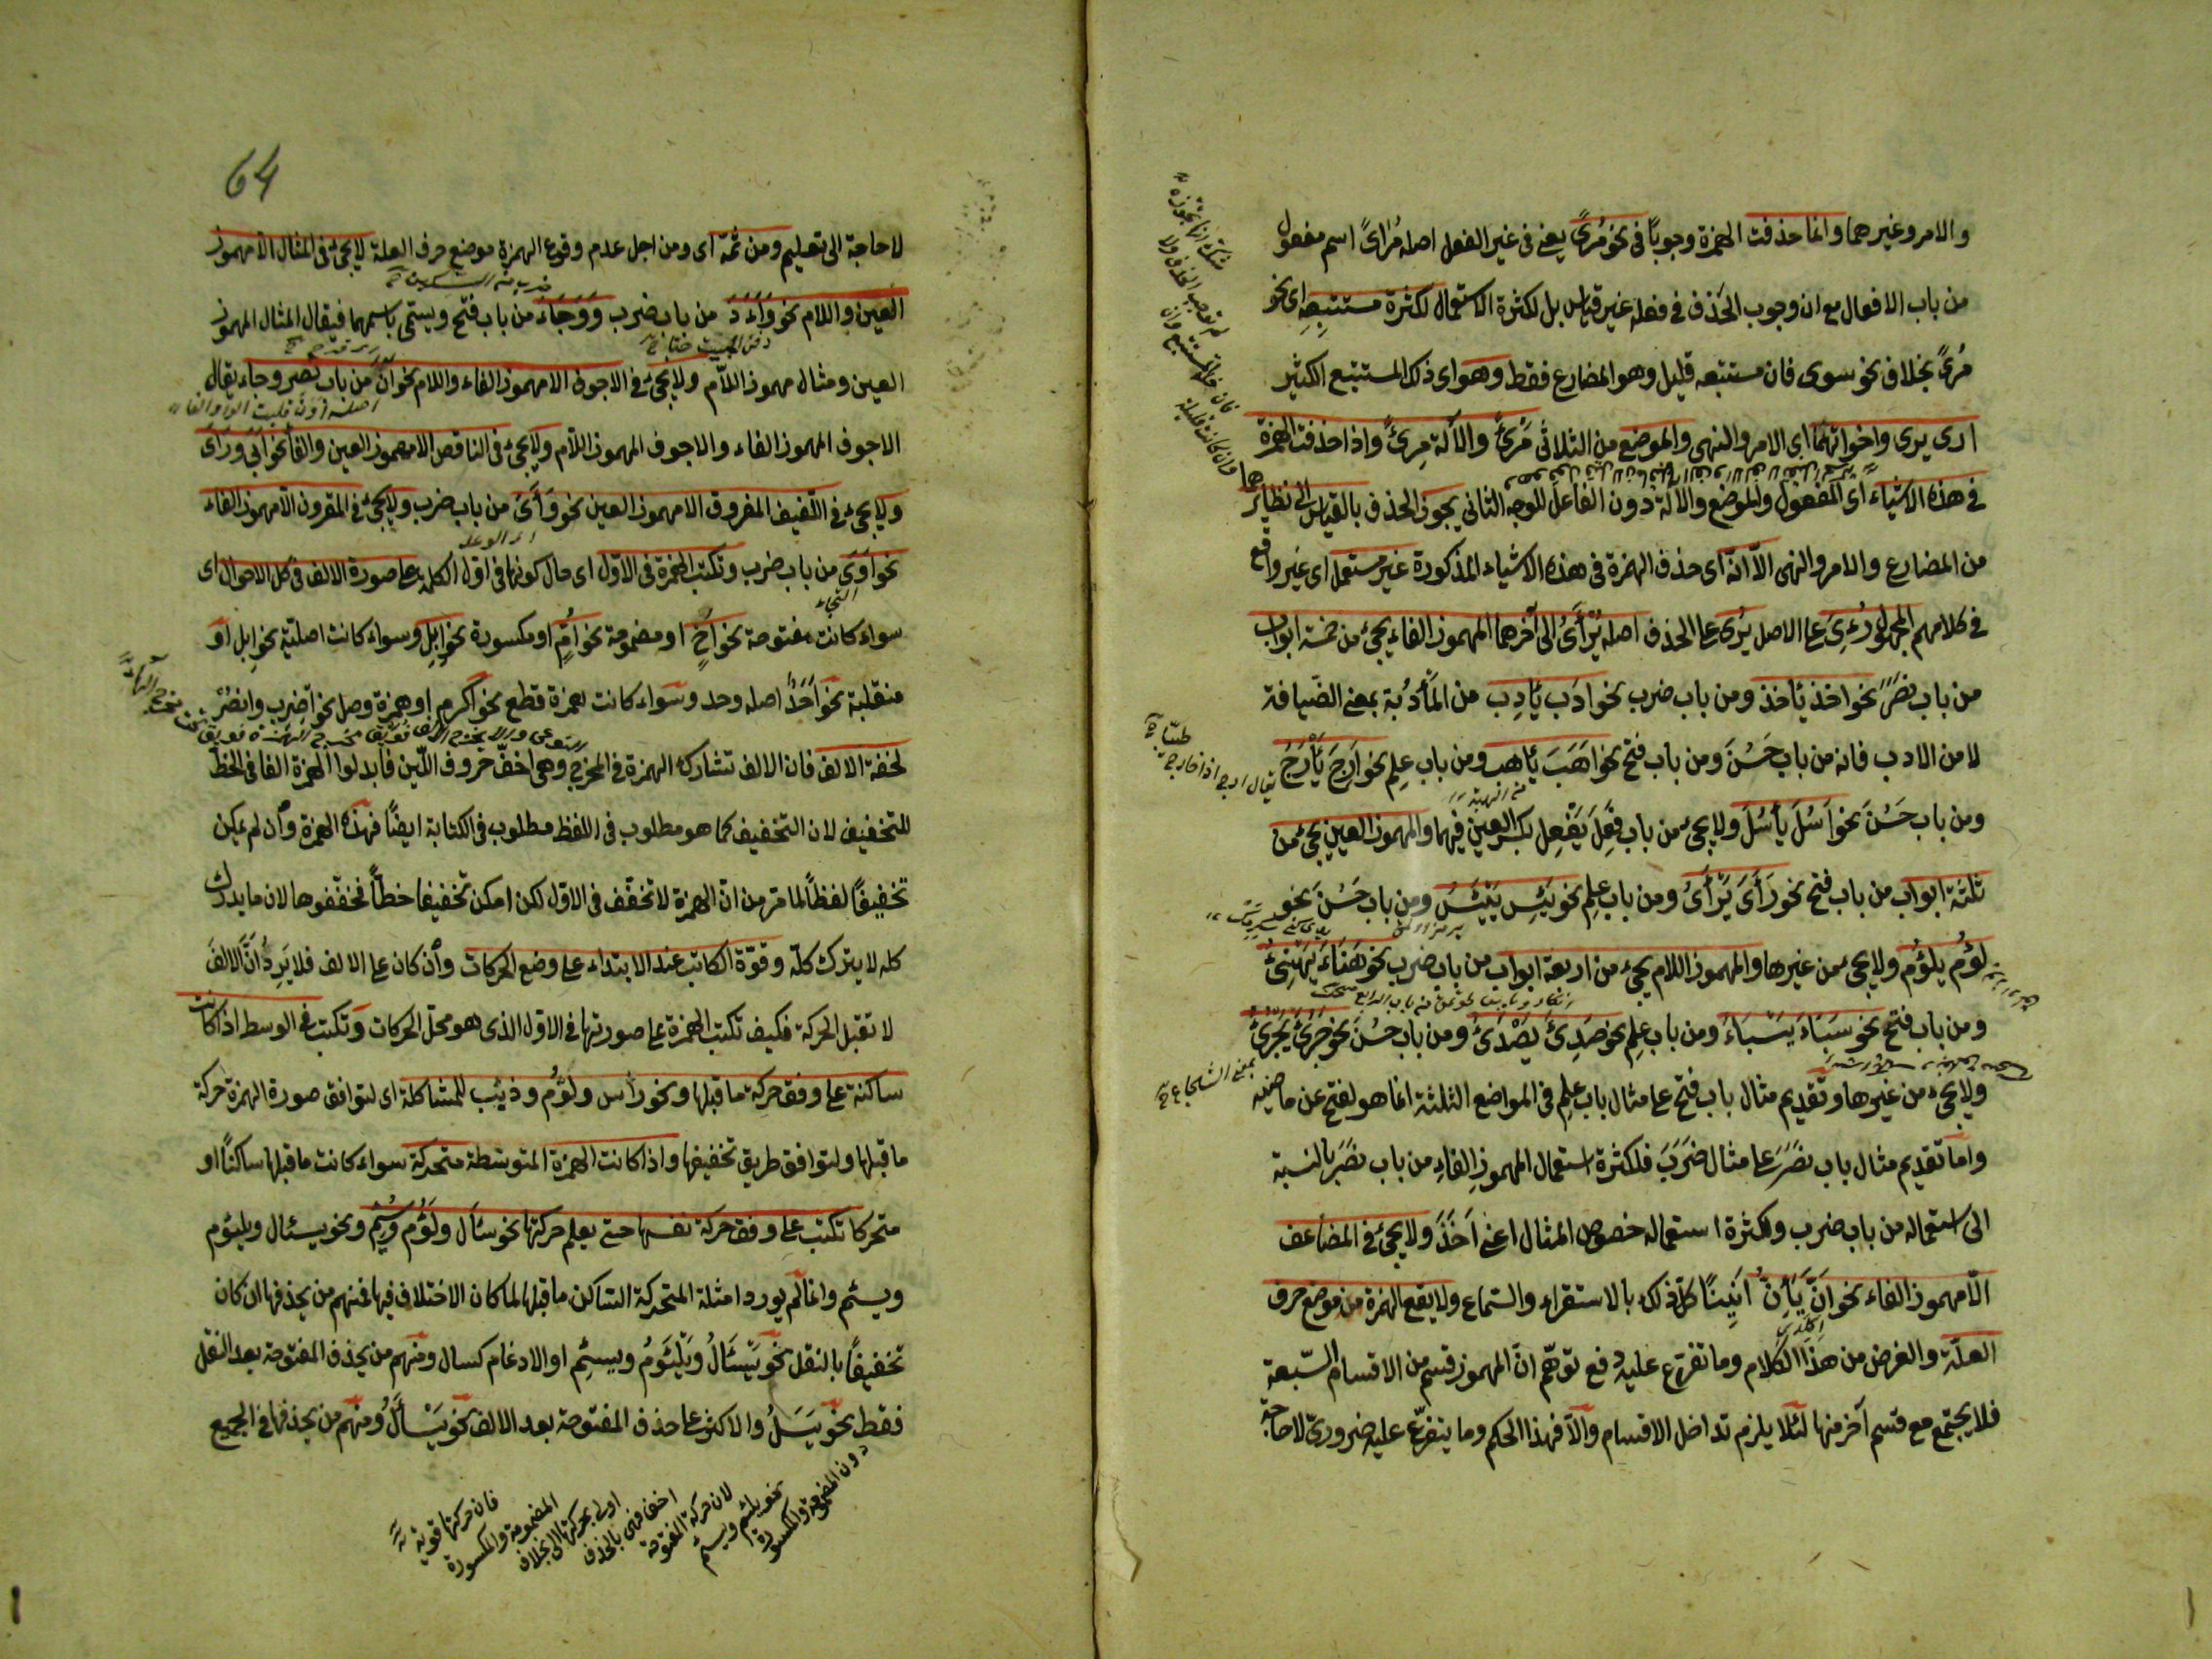 والامر وغيرهما وانما حذفت الهمزة وجوبًا فى نحو مُرىً يعنى فى غير الفعل اصله مُرأىً اسم مفعول
من باب الافعال مع ان وجوب الحذف فى فعله غير قياس بل لكثرة الاستعمال لكثرة مستتبعه اى نحو
مُرىً بخلاف نحو سوى فان مستتبعه قليل وهو المضارع فقط وهو اى ذلك المستتبع الكثير
ارى يرى واخواتهما اى الامر والنهى والموضع من الثلاثى مَرئً والآلة مِرئً واذا حذفت الهمزة
فى هذه الاشياء اى المفعول والموضع والالة دون الفاعل للوجه الثانى يجوز الحذف بالقياس الى نظائرها
من المضارع والامر والنهى الّا انّه اى حذف الهمزة فى هذه الاشياء المذكورة غير مستعمل اى غير واقع
فى كلامهم المجهول رُءِىَ على الاصل يُرى على الحذف اصله يُرْأَىُ الى آخرهما المهموز الفاء يجىء من خمسة ابواب
من باب نصَرَ نحو اخذ ياخذ ومن باب ضرب نحو ادَب يأدِب من المَأدُبة بمعنى الضّيافة
لا من الادب فانه من باب حَسُنَ ومن باب فتح نحو اَهَبَ يأهب ومن باب علِم نحو اَرِجَ يَأْرَجُ
ومن باب حَسُنَ نحو اَسُلَ يأسُلَ ولا يجىء من باب فَعِلَ يَفْعِل بكسر العين فيهما والمهموز العين يجىء من
ثلثة ابواب من باب فتح نحو رَأَىَ يَرْأَىُ ومن باب علِم نحو يَئِسَ يَيْئَسُ ومن باب حَسُنَ نحو
لؤُم يلؤُم ولا يجىء من غيرها والمهموز اللام يجىء من اربعة ابواب من باب ضرب نحو هَنَاءَ يَهْنِئُ
ومن باب فتح نحو سَبَاءَ يَسْبَاءُ ومن باب علِم نحو صَدِئَ يَصْدَئُ ومن باب حسُن نحو جَرُئَ يَجْرُئُ
ولا يجىء من غيرها وتقديم مثال باب فتح على مثال باب علِم فى المواضع الثلثة انما هو لفتح عن ماضيه
واما تقديم مثال باب نصَرَ على مثال ضرَبَ فلكثرة استعمال المهموزِ الفاءِ من باب نصَرَ بالنسبة
الى استعماله من باب ضرب ولكثرة استعماله خصوص المثال اعنى اَخَذَ ولا يجىء فى المضاعف
الّا مهموز الفاء نحو اَنَّ يَأِنُّ اَنِينًا كل ذلك بالاستقراء والسّماع ولا يقع الهمزة من موضع حرف
العلّة والغرض من هذا الكلام وما تفرّع عليه دفع توهّم انّ المهموز قسم من الاقسام السّبعة
فلا يجتمع مع قسم آخر منها لئلّا يلزم تداخل الاقسام والّا فهذا الحكم وما يتفرّع عليه ضرورىّ لا حاجة
64
لا حاجة الى تعليم ومن ثمّة اى ومن اجل عدم وقوع الهمزة موضع حرف العلة لا يجىء فى المثال الّا مهموز
العين واللام نحو وَأَدَ من باب ضرب وَوَجَاءَ من باب فتح ويسمّى باسمهما فيقال المثال المهموز
العين ومثال مهموز اللّام ولا يجىء فى الاجوف الا مهموز الفاء واللام نحو ان من باب نصر وجاء يقال
الاجوف المهموز الفاء والاجوف المهموز اللّام ولا يجىء فى الناقص الا مهموز العين والفاء نحو اَبَى ورَأَى
ولا يجىء فى اللّفيف المفروق الا مهموز العين نحو وَأَىَ من باب ضرب ولا يجىء فى المقرون الّا مهموز الفاء
نحو اَوَىَ من باب ضرب وتكتب الهمزة فى الاوّل اى حال كونها فى اوّل الكلمة على صورة الالف فى كل الاحوال اى
سواء كانت مفتوحة نحو اَخٍ او مضمومة نحو اُمٍّ او مكسورة نحو اِبِل وسواء كانت اصليّة نحو اِبل او
منقلبة نحو اَحَدٌ اصله وحد وسواء كانت همزة قطع نحو اكْرِم او همزة وصل نحو اضرب وانصُرْ
لخفة الالف فان الالف تشارك الهمزة فى المخرج وهى اخفّ حروف اللّين فابدلوا الهمزة الفا فى الخط
للتخفيف لان التخفيف كما هو مطلوب فى اللفظ مطلوب فى الكتابة ايضًا فهذه الهمزة وان لم يمكن
تخفيفًا لفظًا لما مرّ من انّ الهمزة لا تخفّف فى الاوّل لكن امكن تخفيفا خطًّا فخفّفوها لان ما يدرك
كله لا يترك كلّه وقوّة الكاتب عند الابتداء على وضع الحركات وأن كان على الالف فلا يَرِدُ انّ الالفَ
لا تقبل الحركة فكيف تكتب الهمزة على صورتها فى الاول الذى هو محلّ الحركات وتكتب فى الوسط اذا كانت
ساكنة على وفق حركة ما قبلها ونحو رأس ولُؤْم وذِئب للمشاكلة اى لتوافق صورة الهمزة حركة
ما قبلها ولتوافق طريق تخفيفها واذا كانت الهمزة المتوسّطة متحركة سواء كانت ما قبلها ساكنًا او
متحركا تكتب على وفق حركة نفسها حتى يعلم حركتها نحو سَأَل ولَؤُم وسَئِم ونحو يسئال ويلئوم
ويسئم وانما لم يورد امثلة المتحركة السّاكن ما قبلها لما كان الاختلاف فيها فمنهم من يحذفها ان كان
تخفيفًا بالنقل نحو يَسْئَالُ ويَلْئومُ ويسئِم او الادغام كسال ومنهم من يحذف المفتوحة بعد النقل
فقط نحو يَسَلُ والاكثر على حذف المفتوحة بعد الالف نحو يَسْأَلُ ومنهم من يحذفها فى الجميع
دون المضمومة والمكسورة
نحو يلئم ويسئم
لان حركة المفتوحة
اخف فهى بالحذف
المضمومة والمكسورة
فان حركتها قوية